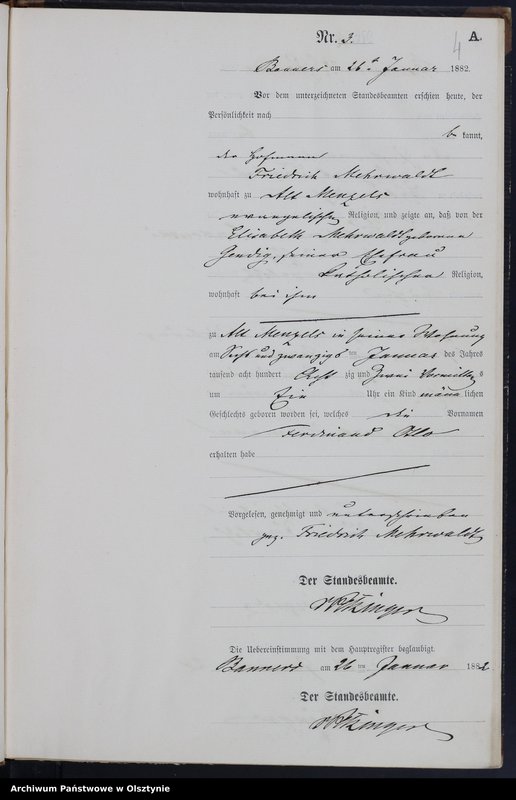 Nr. 3.
4
A.
Banners am 26ten Januar 1882.
Vor dem unterzeichneten Standesbeamten erschien heute, der
Persönlichkeit nach
be kannt,
der Hofmann
Friedrich Mehrwaldt
wohnhaft zu Alt Menzels
evangelischer Religion, und zeigte an, daß von der
Elisabeth Mehrwaldt geborene
seiner Ehefrau
katholischer Religion,
wohnhaft bei ihm
zu Alt Menzels in seiner Wohnung
am Sechs und zwanzigsten Januar des Jahres
tausend acht hundert Acht zig und Zwei Vormittags
um Ein Uhr ein Kind männ lichen
Geschlechts geboren worden sei, welches die Vornamen
Ferdinand Otto
erhalten habe
Vorgelesen, genehmigt und unterschrieben
gez. Friedrich Mehrwaldt
Der Standesbeamte.
Die Uebereinstimmung mit dem Hauptregister beglaubigt.
Banners am 26ten Januar 1882
Der Standesbeamte.
Archiwum Państwowe w Olsztynie